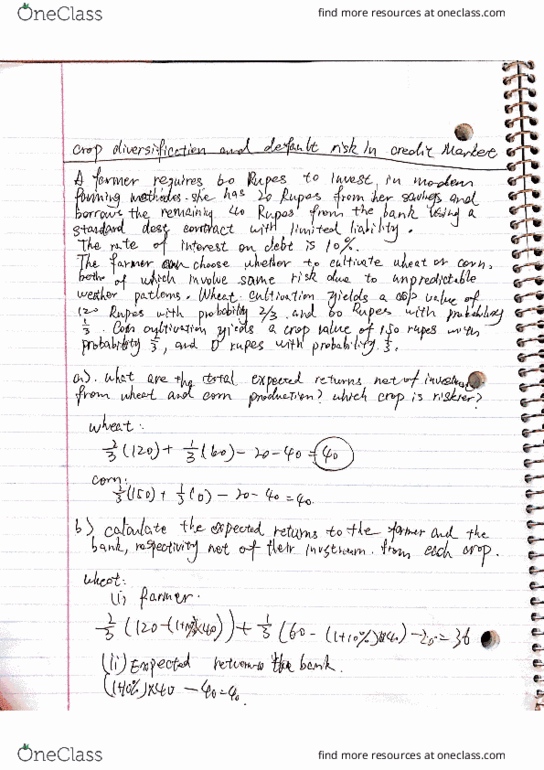 OneClass
find more resources at oneclass.com
crop diversification and default risk In credit Market
A farmer requires 60 Rupes to Invest, in modern
farming methodes. she has 20 Rupes from her savings and
borrows the remaining 40 Rupes from the bank Using a
standard contract with limited liability.
The rate of interest on debt is 10%.
The farmer can choose whether to cultivate wheat or corn,
both of which involve some risk due to unpredictable
weather patterns. Wheat cultivation yields a crop value of
120 Rupes with probability 2/3. and 60 Rupes with probability
1/3. Corn cultivation yields a crop value of 150 rupes with
probability 2/3, and 0 rupes with probability 1/3.
a). what are the total expected returns net of
from wheat and corn production? which crop is riskier?
wheat:
2/3 (120) + 1/3 (60) - 20 - 40 = 40
corn:
2/3 (150) + 1/3 (0) - 20 - 40 = 40.
b) calculate the expected returns to the farmer and the
bank, respectivity net of their from each crop.
wheat:
(i) farmer.
2/3 (120 - (1+10%)x40)) + 1/3 (60 - (1+10%)x40) - 20 = 36
(ii) Expected return the bank.
x40 - 40 = 4
OneClass
find more resources at oneclass.com